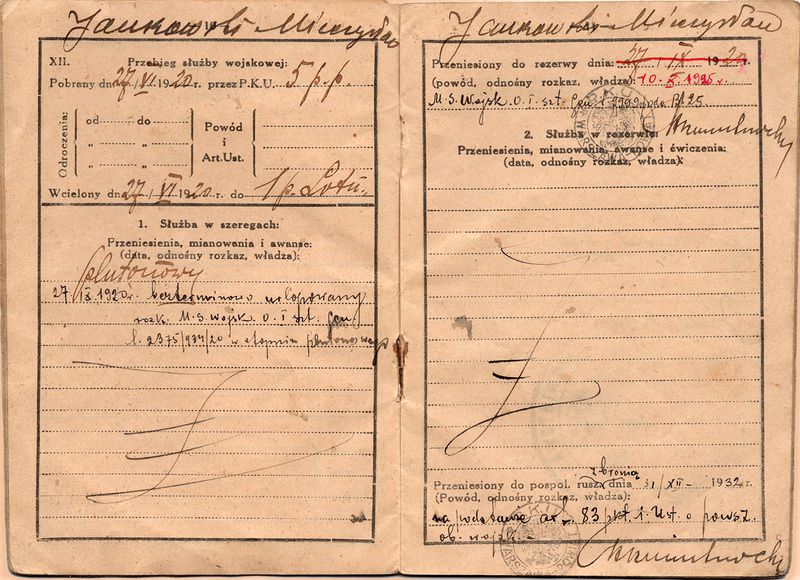 Jankowski Mieczysław
XII. Przebieg służby wojskowej:
Pobrany dn. 27/VI 1920 r. przez P.K.U. 5 p.p.
Odroczenia:
od do
„ „
„ „
Powód
i
Art. Ust.
Wcielony dn. 27/VI 1920 r. do 1 p. Lotn.
1. Służba w szeregach:
Przeniesienia, mianowania i awanse:
(data, odnośny rozkaz, władza):
plutonowy
27 IX 1920r. bezterminowo urlopowany
rozk. M.S.Wojsk. O. I szt. Gen
l. 2375/934/20 w stopniu plutonowego
Jankowski Mieczysław
Przeniesiony do rezerwy dnia: 27/IX 1920
(powód, odnośny rozkaz, władza): 10-5 1925r.
M.S.Wojsk. O. I szt. Gen
2. Służba w rezerwie:
Przeniesienia, mianowania, awanse i ćwiczenia:
(data, odnośny rozkaz, władza):
z bronią
Przeniesiony do pospol. rusz. dnia 31/XII - 1932 r.
(Powód, odnośny rozkaz, władza):
na podstawie art. 83 pkt. 1. Ust. o powsz.
ob. wojsk.